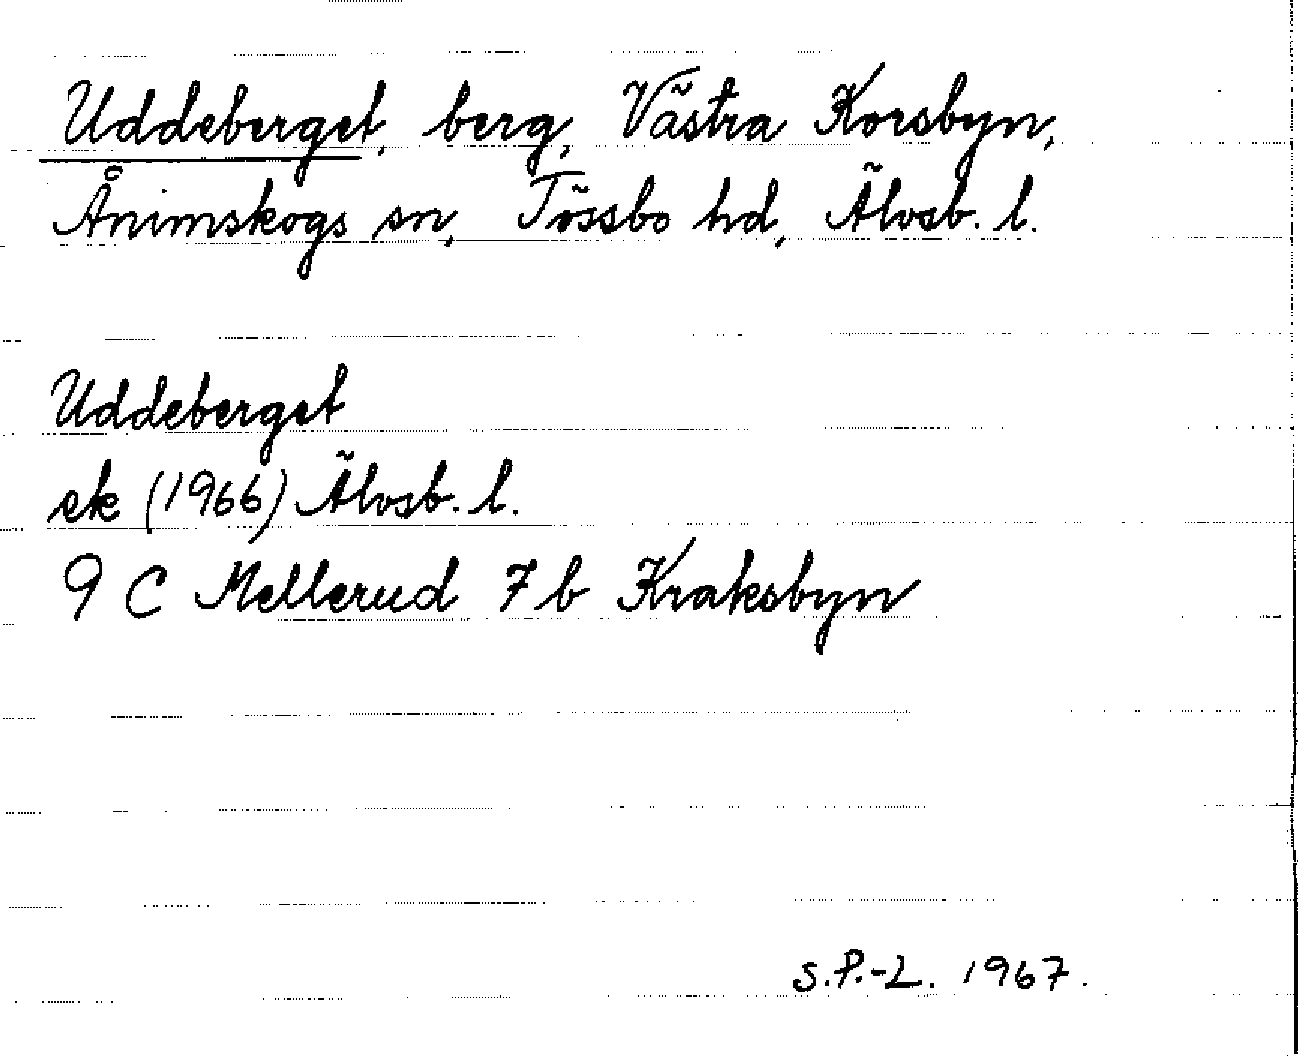 Uddeberget, berg, Västra Korsbyn,
Ånimskogs sn, Tössbo hd, Älvsb. l.
Uddeberget
ek (1966) Älvsb. l.
9 C Mellerud 7 b Kraksbyn
S.P.-L. 1967.